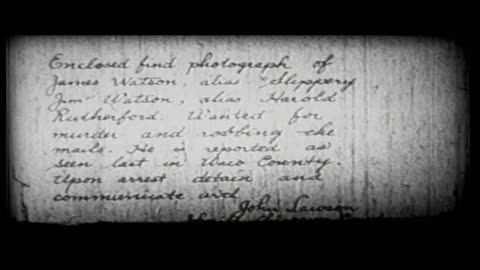 Enclosed find photograph of
James Watson, alias "Slippery
Jim" Watson, alias Harold
Rutherford. Wanted for
murder and robbing the
mails. He is reported as
seen last in Waco County.
Upon arrest detain and
communicate and
John Lawson